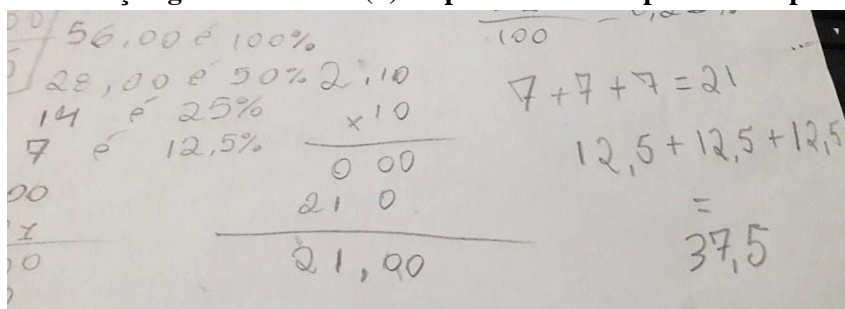 56,00 é 100%
28,00 é 50%
14 é 25%
7 é 12,5%
2,10
x10
0 00
21 0
21,00
100
7+7+7=21
12,5+12,5+12,5
=
37,5